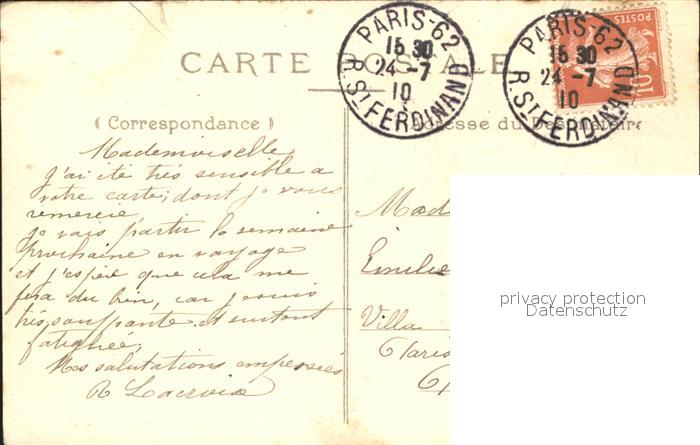 CARTE POSTALE
PARIS-62
15 30
24 -7
10
R. St FERDINAND
PARIS-62
15 30
24 -7
10
R. St FERDINAND
POSTES
10
( Correspondance )
Adresse du Destinataire
Mademoiselle,
j'ai été très sensible a
votre carte, dont je vous
remercie
je vais partir la semaine
prochaine en voyage
et j'espère que cela me
fera du bien, car je suis
très souffrante et surtout
fatiguée,
Mes salutations empressées
R Lacroix
Emilie
Villa
privacy protection
Datenschutz